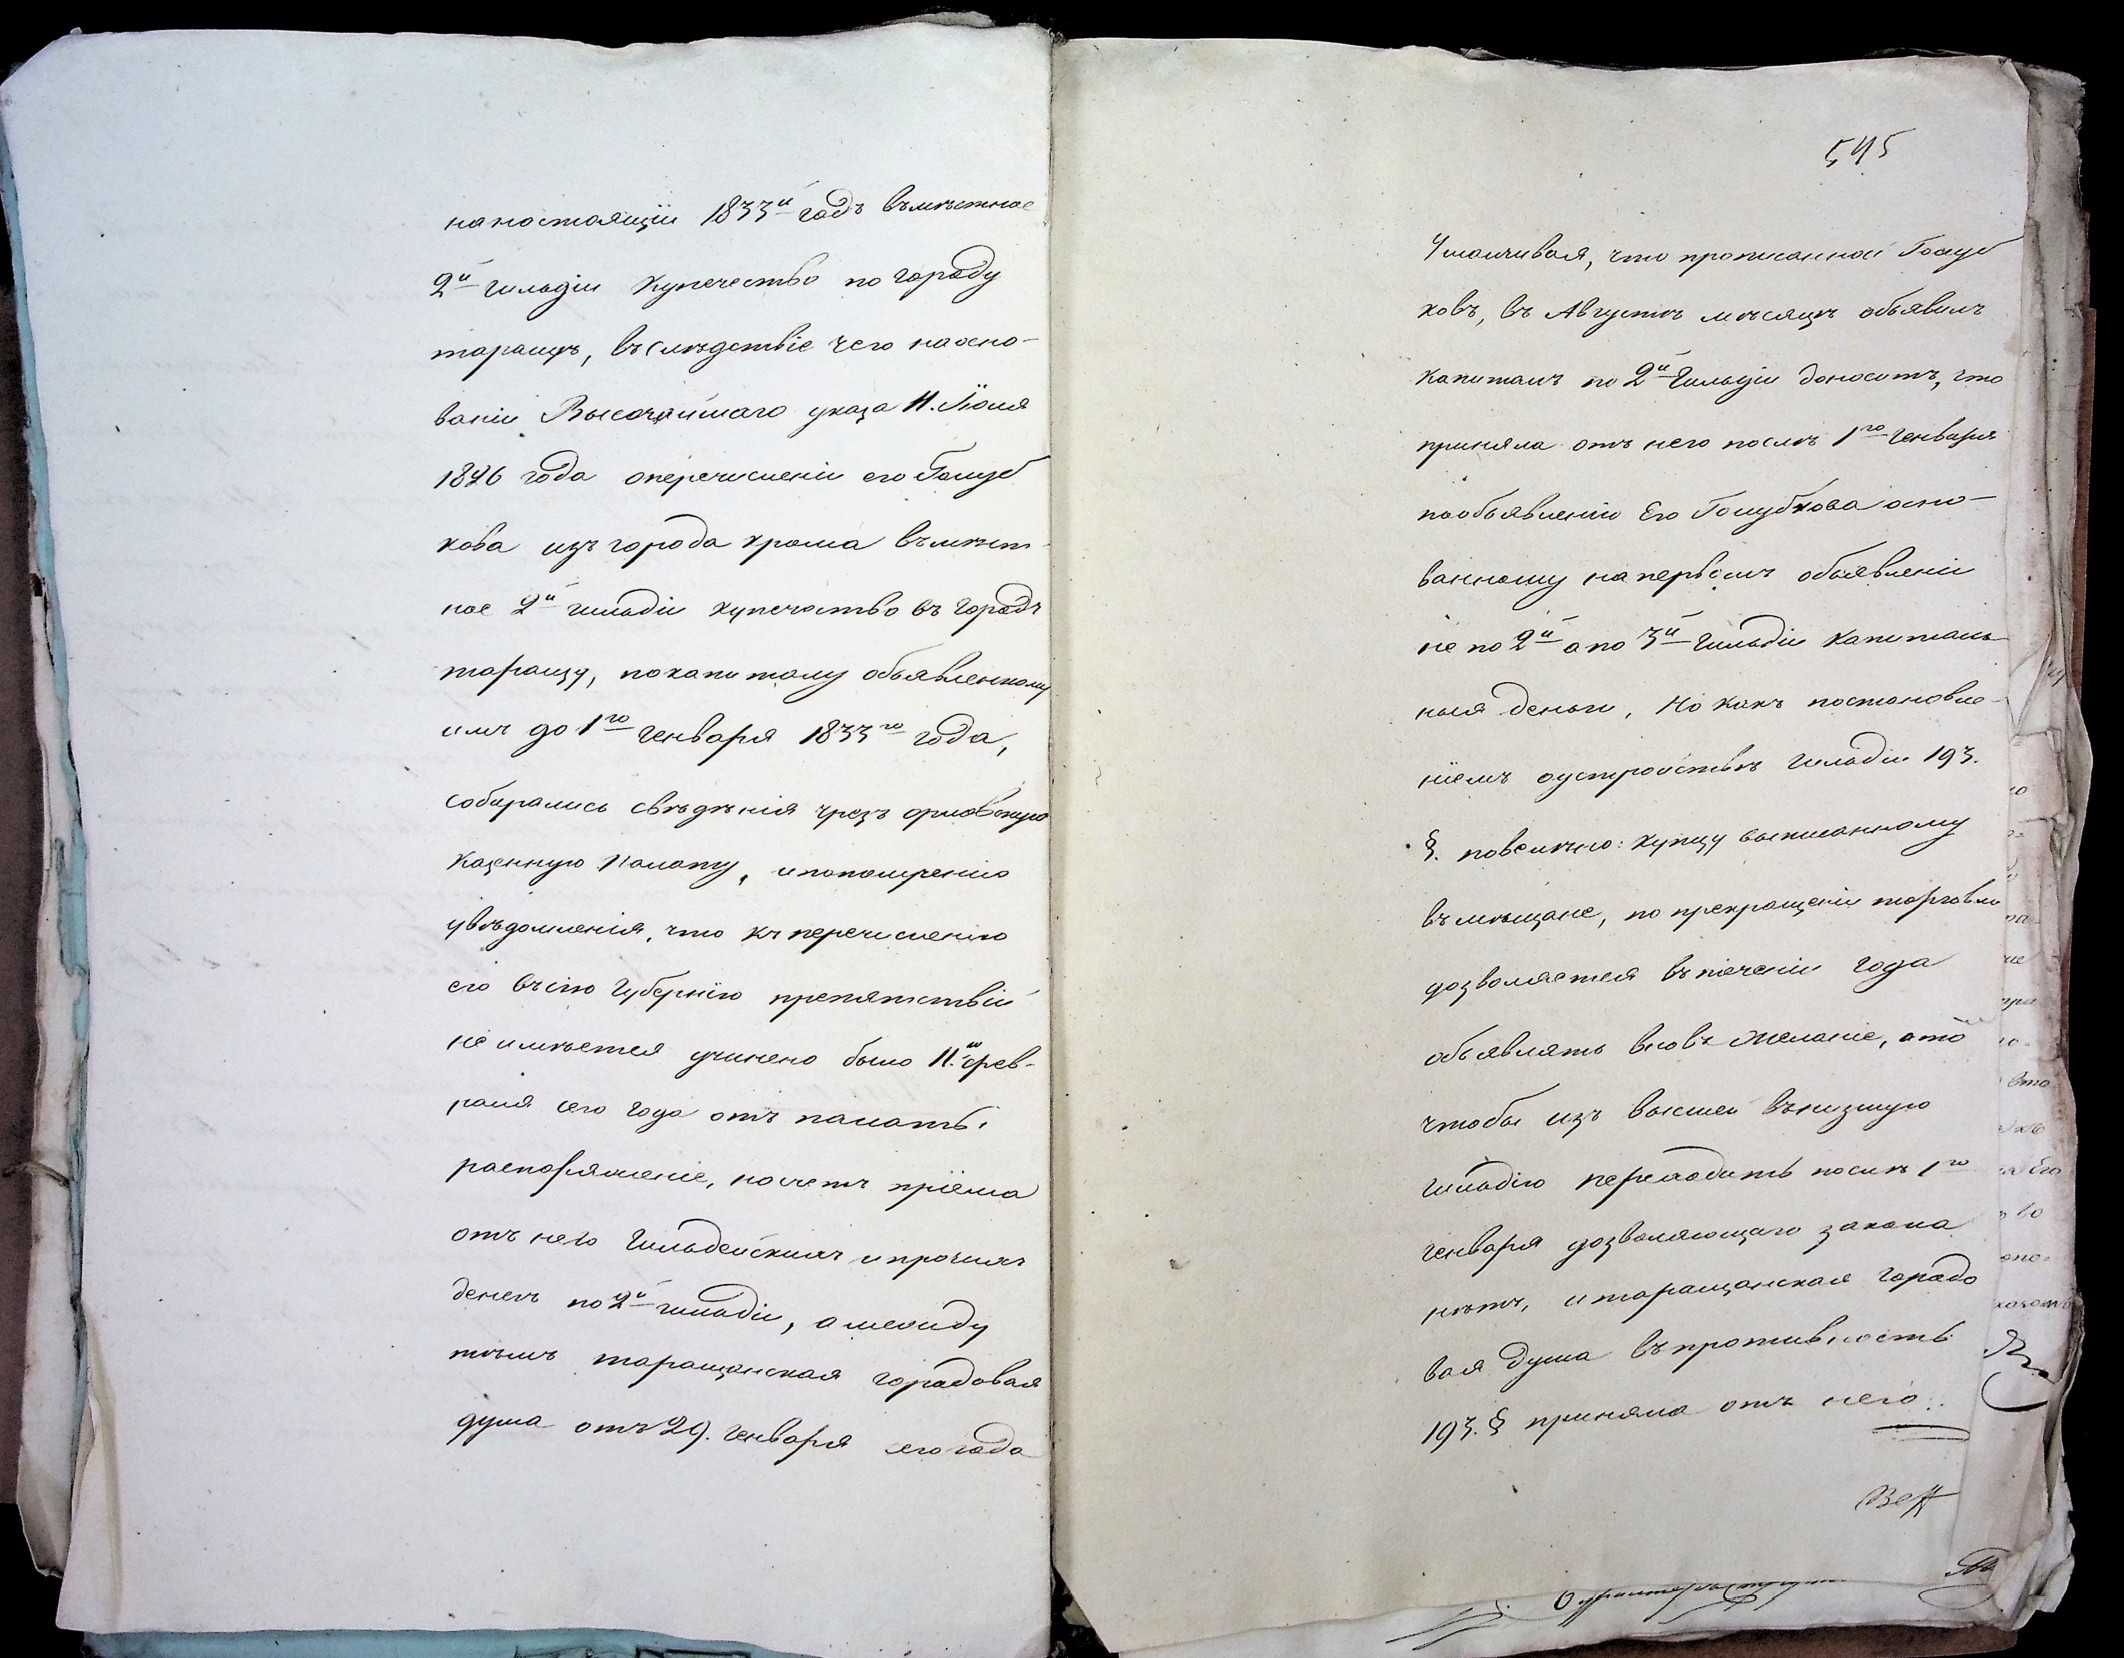 на настоящїй 1833й годъ въ мѣстное
2й гильдіи Купечество по городу
таращѣ, въ слѣдствіе чего на осно-
ваніи Высочайшаго указа 11. Іюля
1826 года о перечисленіи его Голуб
кова изъ города крома въ мѣст-
ное 2й гильдіи купечество въ городѣ
таращу, по капиталу объявленному
имъ до 1го Генваря 1833го года,
собирались свѣдѣнія чрезъ орловскую
Казенную Палату, и по полученію
увѣдомленія, что къ перечисленію
его въ сію Губернїю препятствій
не имѣется учинено было 11го фев-
раля сего года отъ палаты
распоряженіе, на счетъ прїема
отъ него Гильдейскихъ и прочихъ
денегъ по 2й гильдіи, а между
тѣмъ таращанская городовая
дума отъ 29. Генваря сего года
545
Умалчивая, что прописанной Голуб
ковъ, въ Августѣ мѣсяцѣ объявилъ
Капиталъ по 2й Гильдіи доноситъ, что
приняла отъ него послѣ 1го Генваря
по объявленію Его Голубкова осно-
ванному на первомъ объявленіи
не по 2й а по 3й Гильдіи Капиталь
ныя деньги, Но какъ постановле-
нїемъ о устройствѣ Гильдіи 193.
§. повелѣно: купцу выписанному
въ мѣщане, по прекращеніи торговли
дозволяется въ теченіи года
объявлять вновь желаніе, а то
чтобы изъ высшей въ низшую
гильдію переходить послѣ 1го
Генваря дозволяющаго закона
нѣтъ, и таращанская городо
вая Дума въ противность
193. § приняла отъ него